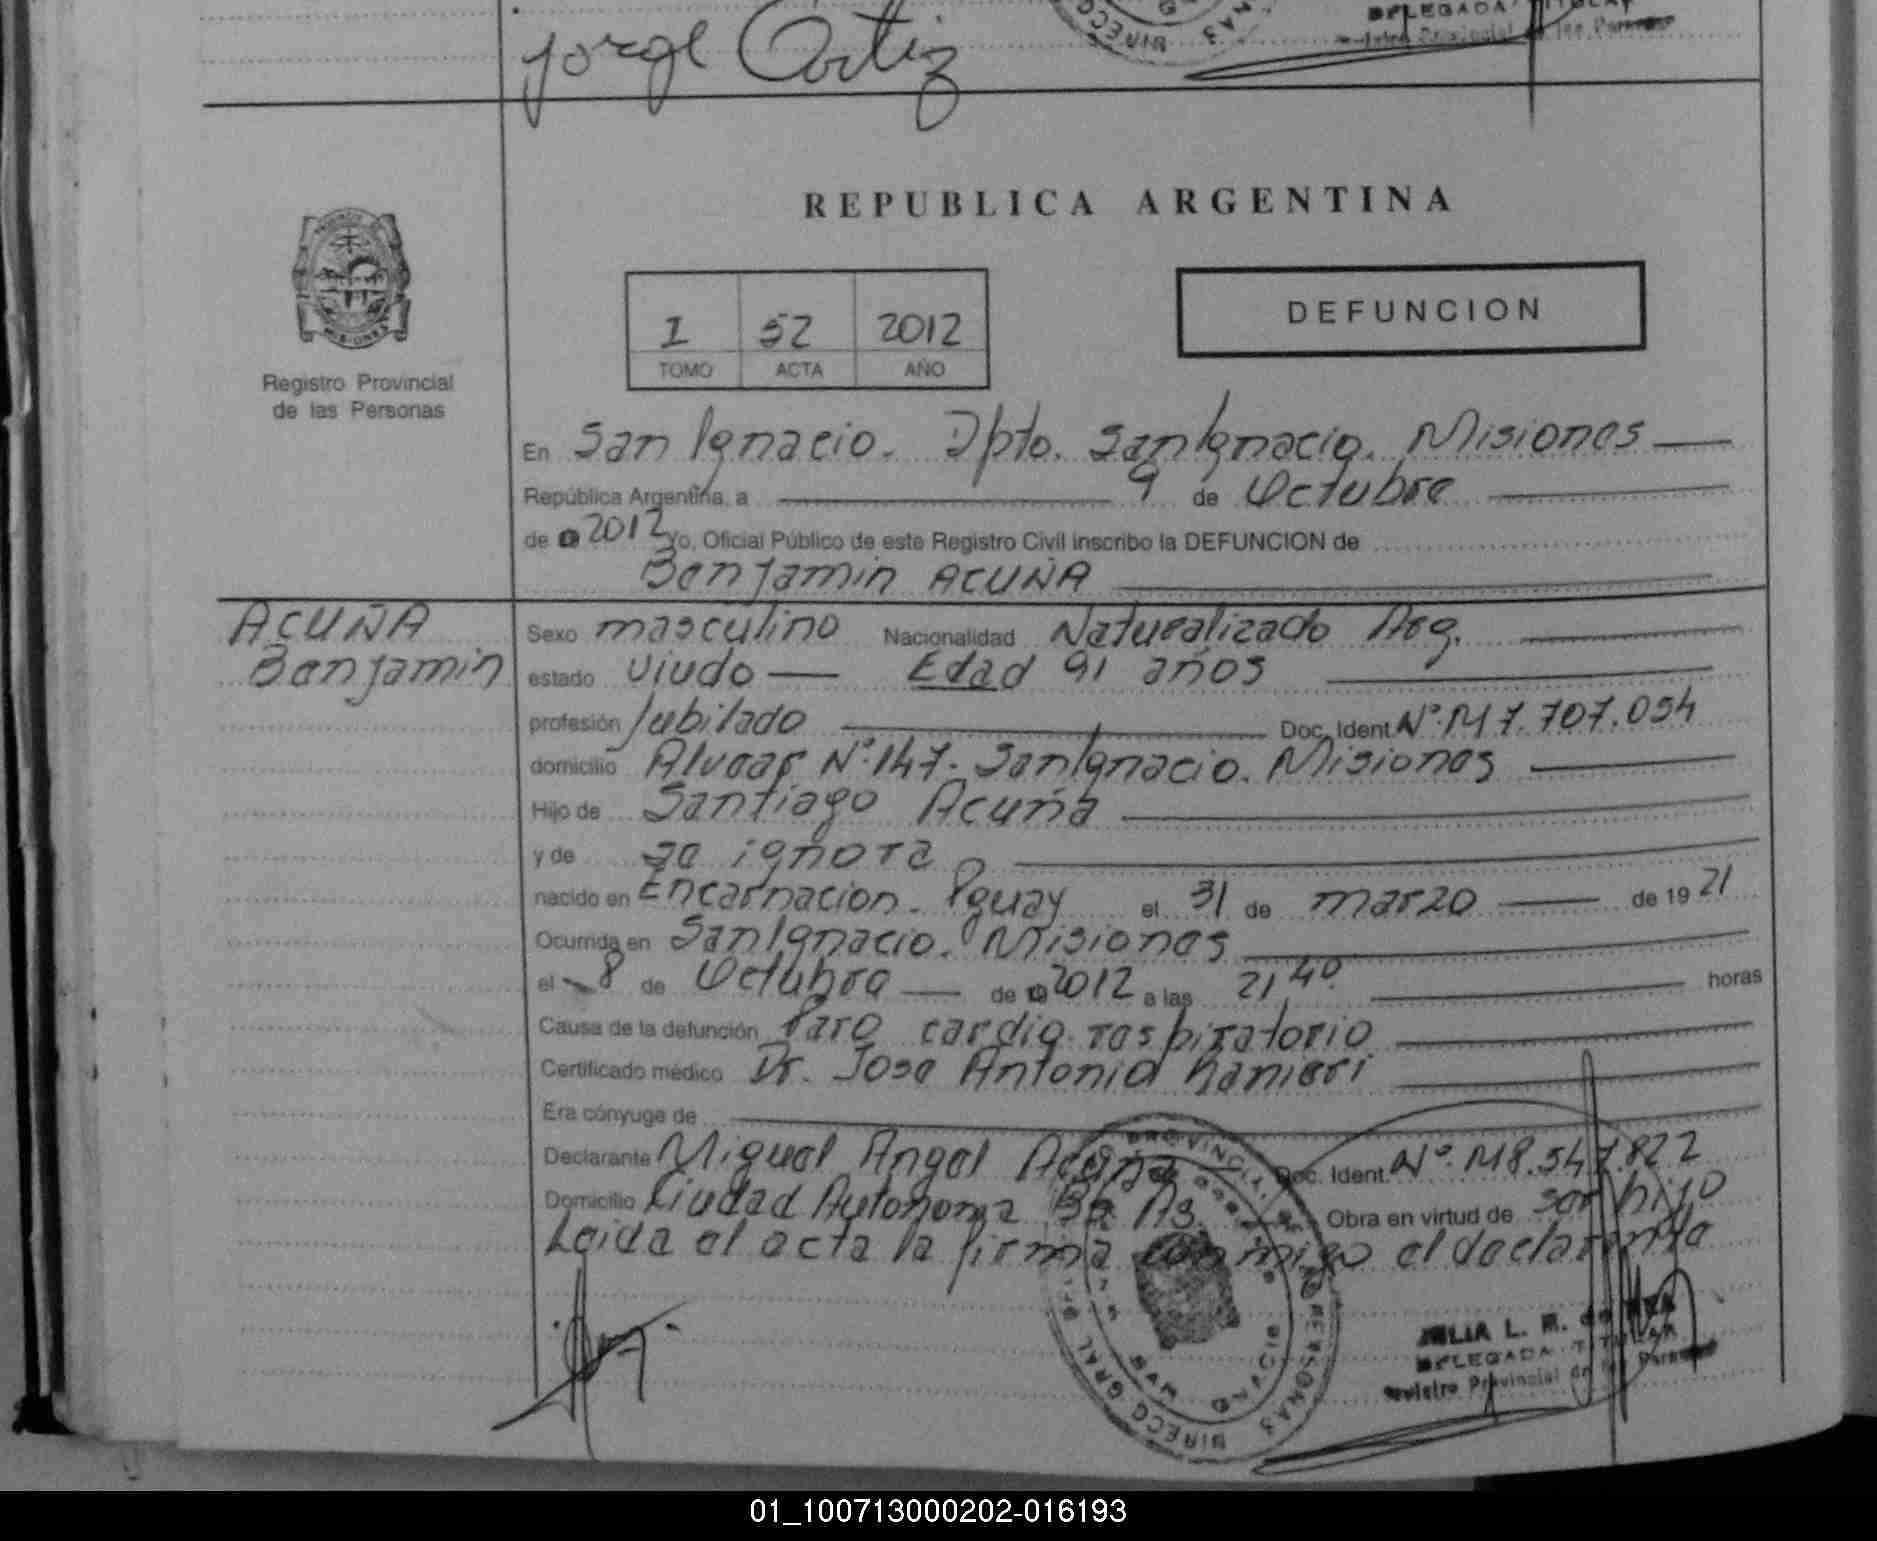 Jorge Ortiz
DELEGADA TITULAR
Registro Provincial de las Personas
REPUBLICA ARGENTINA
I 52 2012
TOMO ACTA AÑO
DEFUNCION
Registro Provincial
de las Personas
En San Ignacio. Dpto. San Ignacio. Misiones
República Argentina, a 9 de Octubre
de 2012 Yo, Oficial Público de este Registro Civil inscribo la DEFUNCION de
Benjamin ACUÑA
ACUÑA
Benjamin
Sexo masculino Nacionalidad Naturalizado Arg.
estado viudo Edad 91 años
profesión Jubilado Doc. Ident. Nº. M 7.707.054
domicilio Alvear Nº 147. San Ignacio. Misiones
Hijo de Santiago Acuña
y de se ignora
nacido en Encarnacion. Pguay el 31 de marzo de 19 21
Ocurrida en San Ignacio. Misiones
el 8 de Octubre de 2012 a las 21,40 horas
Causa de la defunción Paro cardio respiratorio
Certificado médico Dr. Jose Antonio Ranieri
Era cónyuge de
Declarante Miguel Angel Acuña Doc. Ident. Nº. M8.547.822
Domicilio Ciudad Autonoma Bs. As. Obra en virtud de ser hijo
Leida el acta la firma conmigo el declarante
JULIA L. R. de
DELEGADA TITULAR
Registro Provincial de las Personas
DIRECC. GRAL. PROVINCIAL PERSONAS
01_100713000202-016193